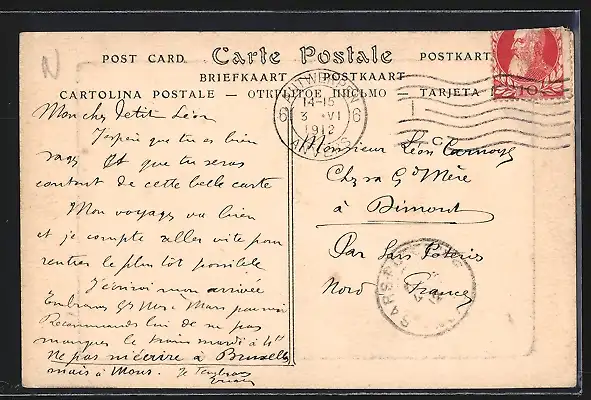 N
POST CARD Carte Postale POSTKART
BRIEFKAART — POSTKAART
CARTOLINA POSTALE — ОТКРЫТОЕ ПИСЬМО — TARJETA
ANTWERPEN
6 14-15 6
3 VI
1912
ANVERS
10
Mon cher petit Léon
J'espère que tu es bien
sage et que tu seras
content de cette belle carte
Mon voyage va bien
et je compte aller vite pour
rentrer le plus tôt possible
J'écrirai mon arrivée
Embrasse Gd Mère Mars pour moi
Recommande lui de ne pas
manquer le train mardi à
Ne pas m'écrire à Bruxelles
mais à Mons. Je t'embrasse
Monsieur Léon Carnoye
Chez sa Gd Mère
à Dimont
Par Sars Poteries
Nord France
SARS-POTERIES